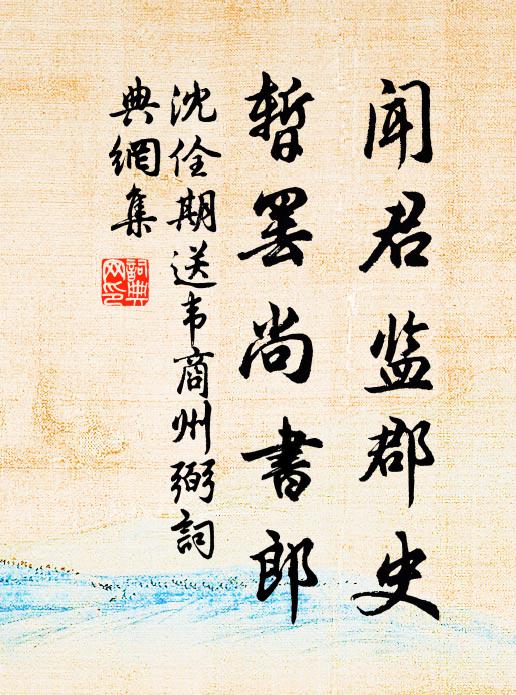 闻君监郡史
暂罢尚书郎
沈佺期送韦商州弼词
典网集
词典
网印